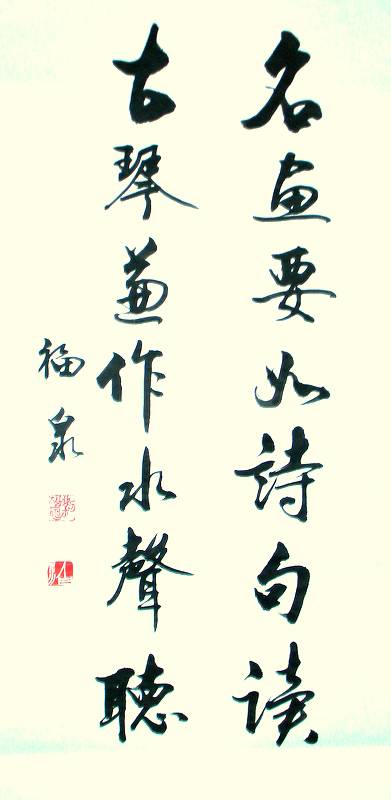 名畫要如詩句讀
古琴兼作水聲聽
福泉